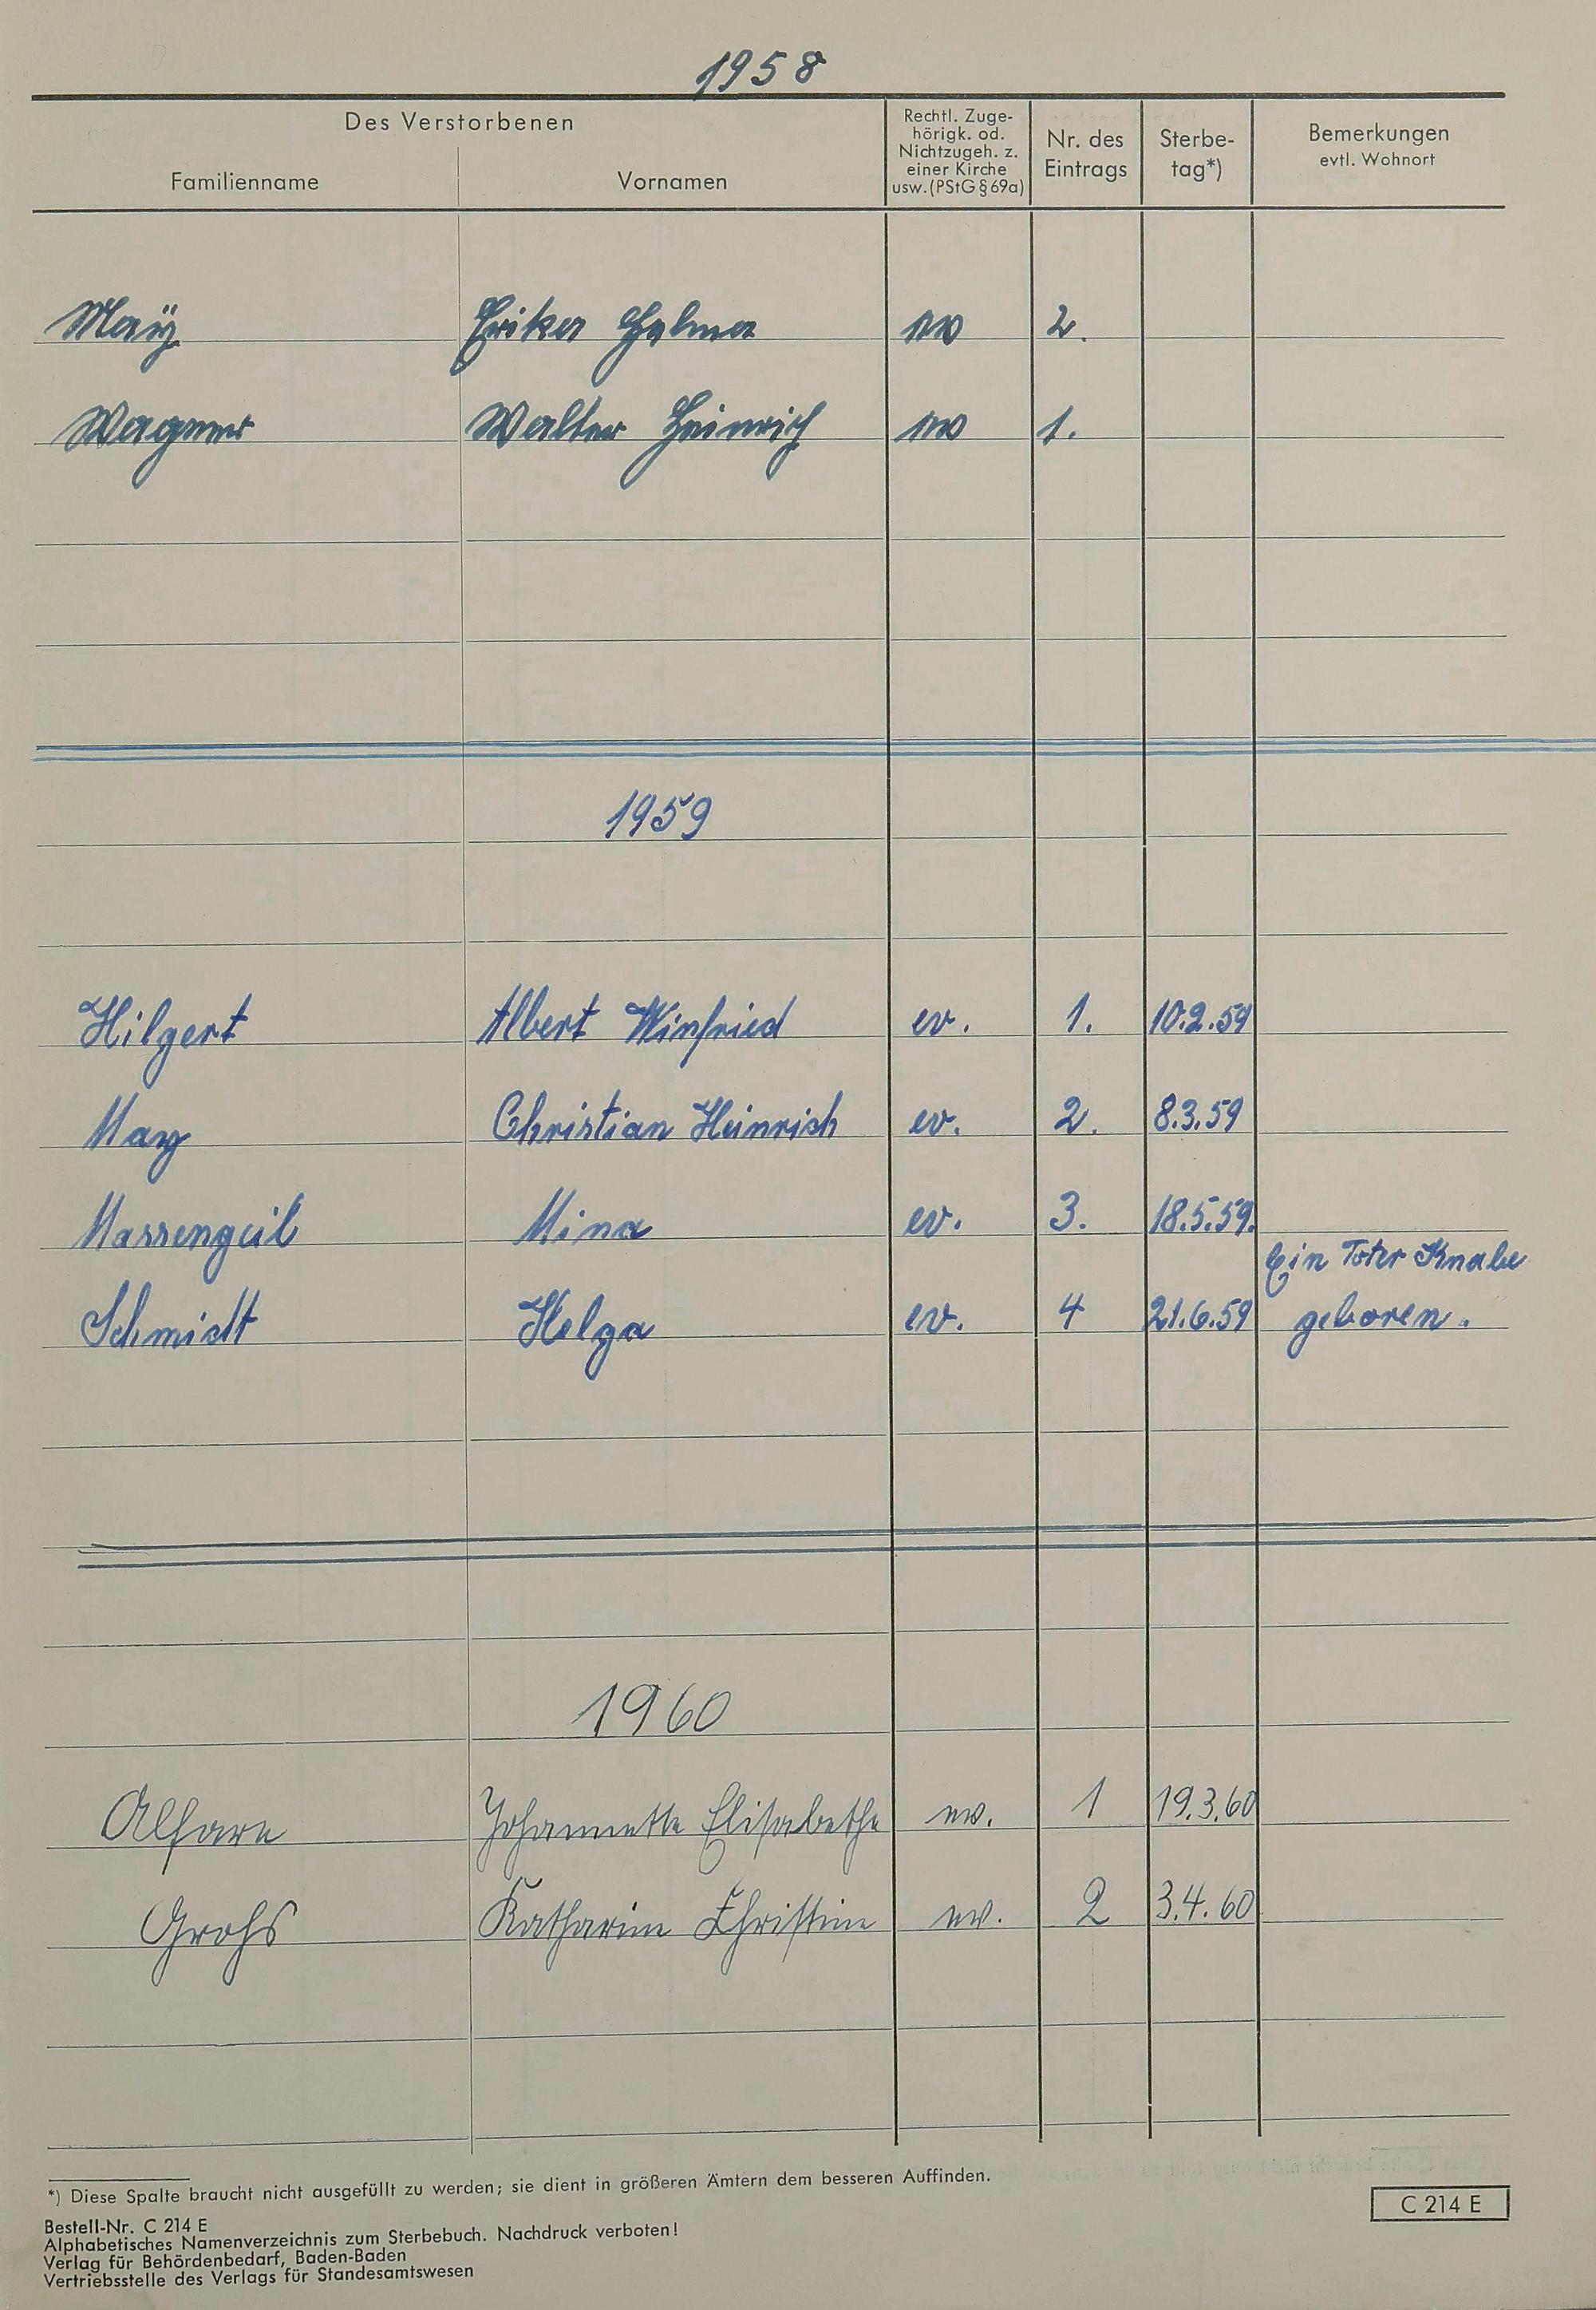 1958
Des Verstorbenen
Familienname
Vornamen
Rechtl. Zuge-
hörigk. od.
Nichtzugeh. z.
einer Kirche
usw. (PStG § 69a)
Nr. des
Eintrags
Sterbe-
tag*)
Bemerkungen
evtl. Wohnort
Maÿ Erika Helma ev 2.
Wagner Walter Heinrich ev 1.
1959
Hilgert Albert Winfried ev. 1. 10.2.59
May Christian Heinrich ev. 2. 8.3.59
Massengeil Mina ev. 3. 18.5.59.
Ein Toter Knabe
Schmidt Helga ev. 4 21.6.59 geboren.
1960
Johannette Elisabethe ev. 1 19.3.60
Grohs Katharine Christine ev. 2 3.4.60
*) Diese Spalte braucht nicht ausgefüllt zu werden; sie dient in größeren Ämtern dem besseren Auffinden.
Bestell-Nr. C 214 E
Alphabetisches Namenverzeichnis zum Sterbebuch. Nachdruck verboten!
Verlag für Behördenbedarf, Baden-Baden
Vertriebsstelle des Verlags für Standesamtswesen
C 214 E